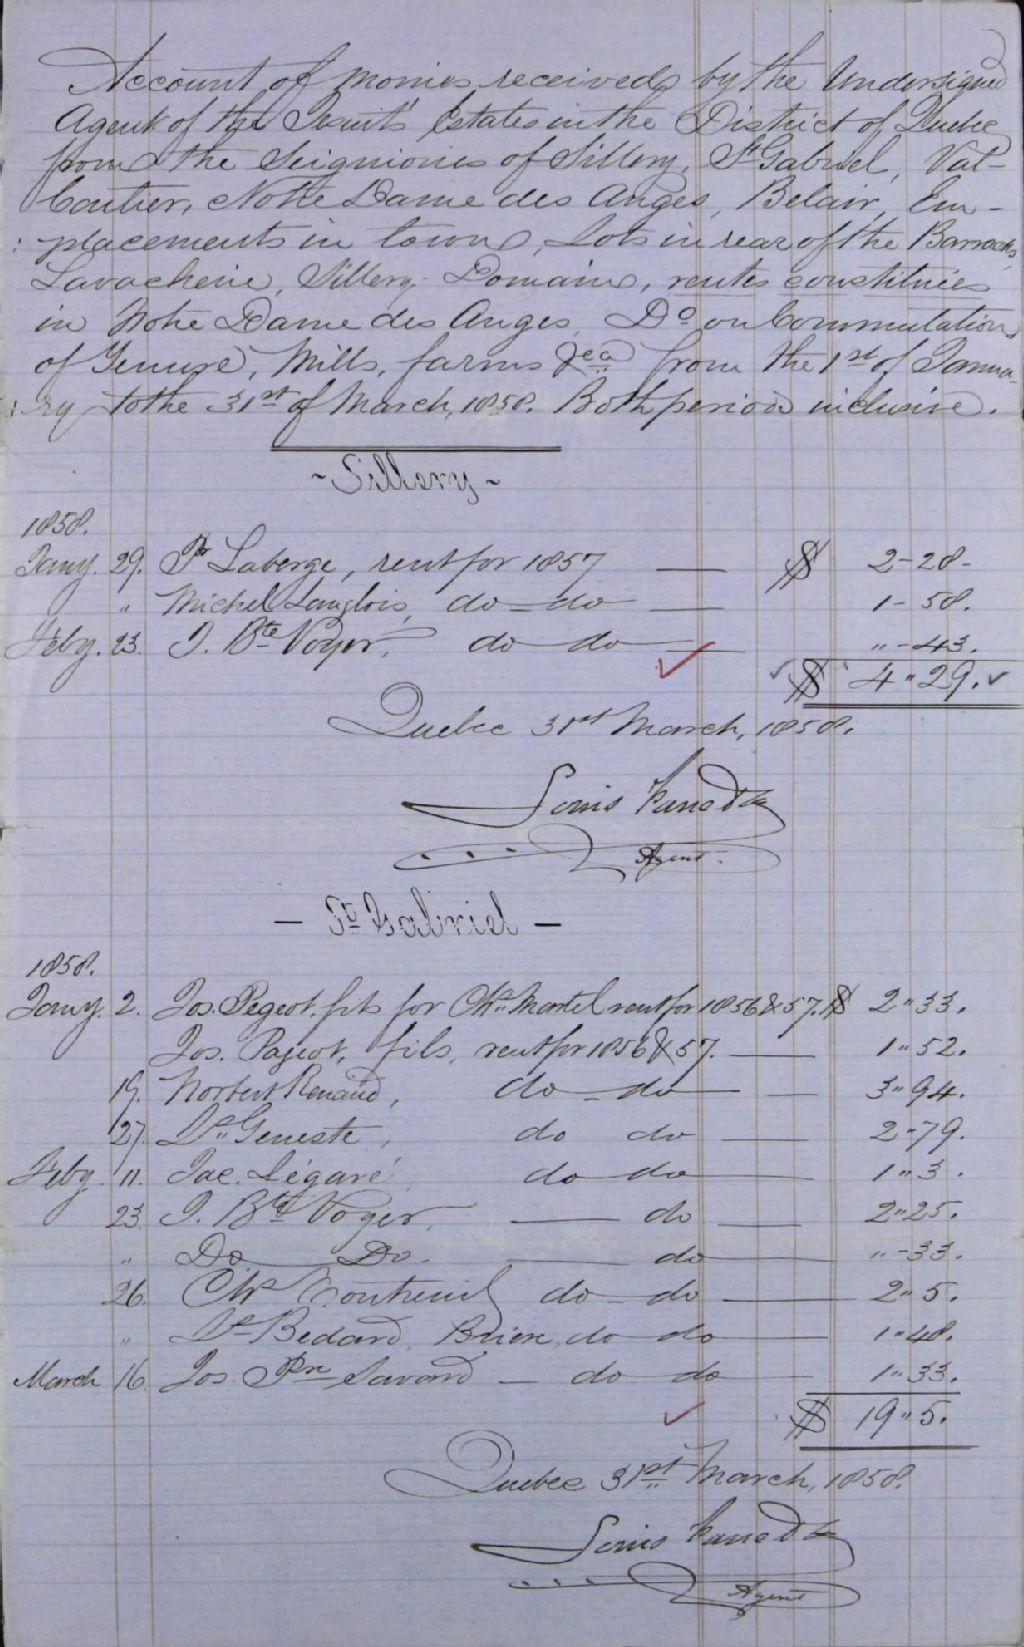 Account of monies received by the Undersigned
Agent of the Jesuits Estates in the District of Quebec
from the Seigniories of Sillery, St Gabriel, Val-
Cartier, Notre Dame des Anges, Belair, Em-
:placements in town, Lots in rear of the Barracks,
Lavacherie, Sillery Domaine, rentes constituées
in Notre Dame des Anges, Do on Commutation
of Tenure, Mills, farms &ca from the 1st of Janua-
:ry to the 31st of March, 1858. Both periods inclusive.
~Sillery~
1858.
Jany. 29. Pr Laberge, rent for 1857 — $ 2-28-
" Michel Langlois, do - do — 1-58.
Feby. 23. J. Bte Voyer, do do — "-43.
$ 4"29.
Quebec 31st March, 1858.
Louis Panet
Agent.
— St Gabriel —
1858.
Jany. 2. Jos. Pageot, fils for Chs Martel rent for 1856 & 57. $ 2"33.
Jos. Pageot, fils, rent for 1856 & 57. — 1"52.
19. Norbert Renaud, do - do — 3"94.
27. Geneste, do do — 2-79.
Feby. 11. Jac. Légaré do do — 1"3.
23. J. Bte Voyer, — do — 2"25.
" Do Do. — do — "-33.
26. Chs Montreuil do - do — 2"5.
" Bedard, Briere, do do — 1"48.
March 16. Jos. Pre Savard — do do — 1"33.
$ 19"5.
Quebec 31st March, 1858.
Louis Panet
Agent